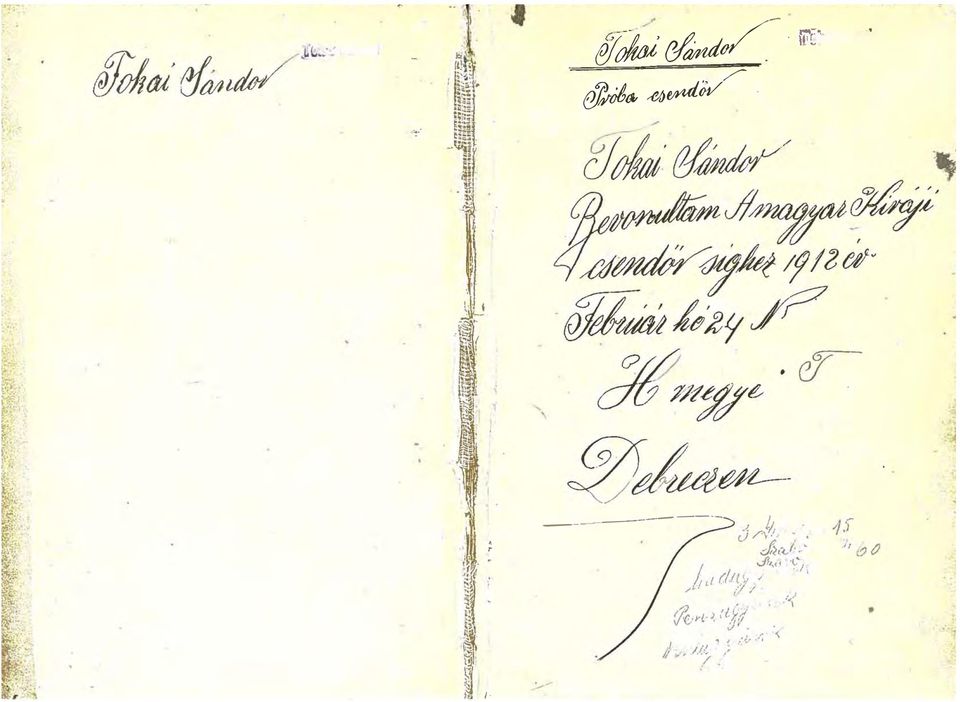 Tokai Sándor
Tokai Sándor
Próba csendőr
Tokai Sándor
Bevonultam A magyar Kiráji
csendőr sighez 1912 év
Február hó 24 N
H megye T
Debreczen
3 15
60